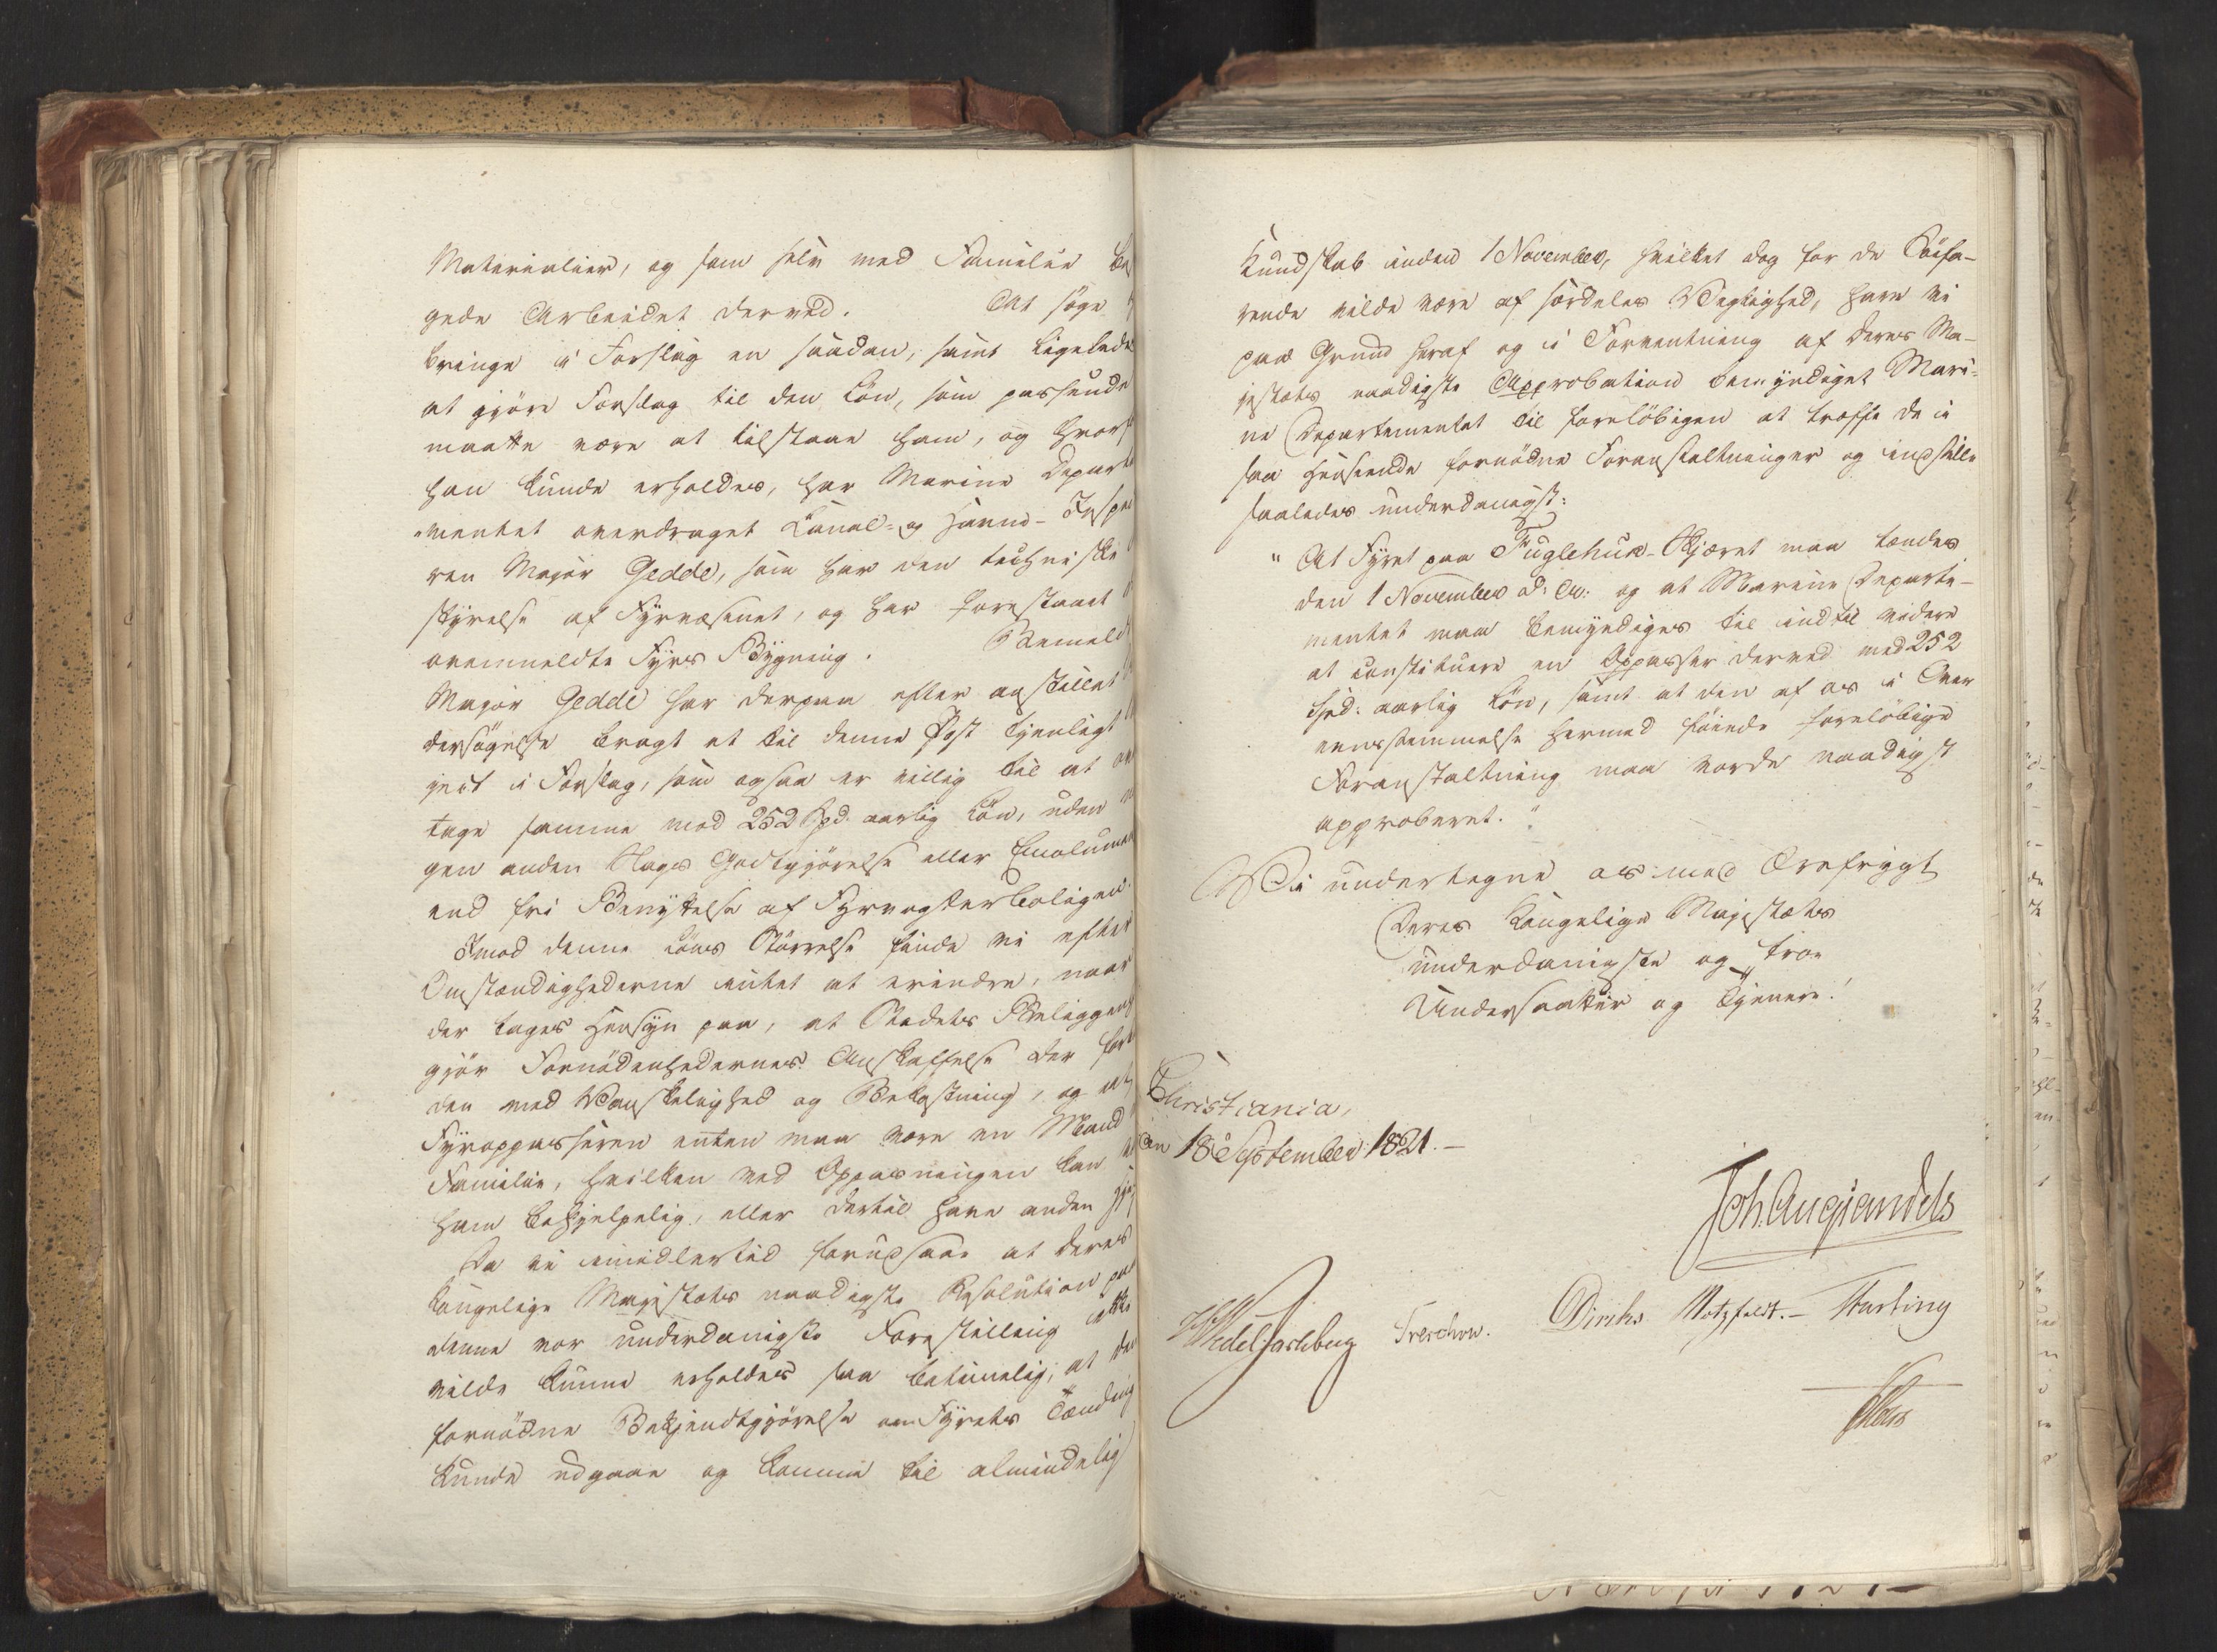 Materialier, og som selv med Familie be
gede Arbeidet derved. At søge
bringe i Forslag en saadan, samt ligeledes
at gjöre Forslag til den Lön, som passende
maatte være at tilstaae ham, og hvorf
han kunde erholdes, har Marine Departe
mentet overdraget Canal- og Havne-Inspec
ren Major Gedde, som har den techniske
styrelse af Fyrvæsenet, og har forestaaet
ovenmeldte Fyrs Bygning. Bemeldte
Major Gedde har derpaa efter anstillet
dersögelse bragt et til denne Post tjenligt
ject i Forslag, som ogsaa er villig til at ov
tage samme mod 252 Spd. aarlig Lön, uden
gen anden Slags Godtgjörelse eller Emolumen
end fri Benyttelse af Fyrvogterboligen.
Imod denne Löns Störrelse finde vi efter
Omstændighederne intet at erindre, naar
der tages Hensyn paa, at Stedets Beliggenh
gjör Fornödenhedernes Anskaffelse der for
den med Vanskelighed og Bekostning, og at
Fyropasseren enten maa være en Mand
Familie, hvilken ved Opasningen kan
ham behjelpelig, eller dertil have anden Hje
Da vi imidlertid forudsaae at Deres
Kongelige Majestæts naadigste Resolution paa
denne vor underdanigste Forestilling ikke
vilde kunne erholdes saa betimelig, at den
fornödne Bekjendtgjörelse om Fyrets Tænding
kunde udgaae og komme til almindelig
Kundskab inden 1 November, hvilket dog for de Söefa-
rende vilde være af særdeles Vigtighed, have vi
paa Grund heraf og i Forventning af Deres Ma-
jestæts naadigste Approbation bemyndiget Mari-
ne Departementet til foreløbigen at træffe de i
saa Henseende fornödne Foranstaltninger og indstille
saaledes underdanigst:
"At Fyret paa Fuglehuk-Skjæret maa tændes
den 1 November d. A. og at Marine Departe-
mentet maa bemyndiges til indtil videre
at constituere en Opasser derved med 252
Spd. aarlig Lön, samt at den af os i Over
eensstemmelse hermed föiede forelöbige
Foranstaltning maa vorde naadigst
approberet."
Vi undertegne os med Ærefrygt
Deres Kongelige Majestæts
underdanigste og troe
Undersaatter og Tjenere!
Christiania,
den 18 September 1821. —
Joh. Aug. Sandels
HWedel Jarlsberg Treschow. Diriks Motzfeldt. — Fasting